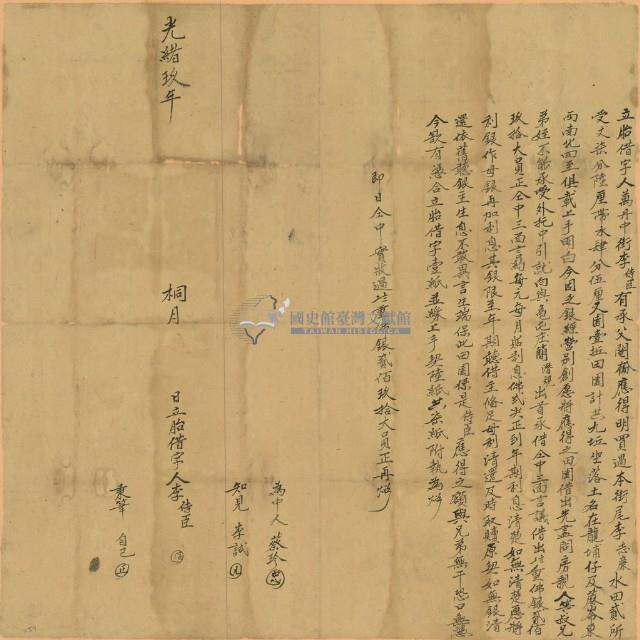 立胎借字人萬丹中街李侍臣有承父鬮應得明買過本街尾李志廉水田貳所
受丈柒分陸厘帶水肆分伍厘又園壹坵田園計共九坵坐落土名在龍埔仔及東
西南北四至俱載上手明白今因乏銀經營別創愿將應得之田園借出先盡問房親人等叔兄
弟姪不能承受外托中引就向與庄簡出首承借仝中三面言議借出佛銀貳佰
玖拾大員正仝中三面言約每元每月貼利息佛正到年期利息清楚如無清楚愿將
利銀作母銀再加利息其銀限至年期聽借主備足母利清還及時取贖原契如無銀清
還依舊聽銀主生息不敢異言生端保此田園係是侍臣應得之額與兄弟無干恐口無憑
今欲有憑合立胎借字壹紙並繳上手契陸紙共柒紙附執為炤
即日仝中實收過佛銀貳佰玖拾大員正再炤
國史館臺灣文獻館
TAIWAN HISTORICA
為中人 蔡珍
知見 李試
光緒玖年 桐月 日立胎借字人李侍臣
秉筆 自己